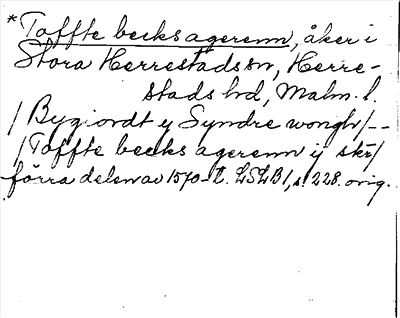 *Toffte becks agerenn, åker i
Stora Herrestads sn, Herre-
stads hd, Malm. l.
/Bygiordt ij Syndre wongh/--
/Toffte becks agerenn ij skr/
förra delen av 1570-t. LSLB1, s. 228. orig.